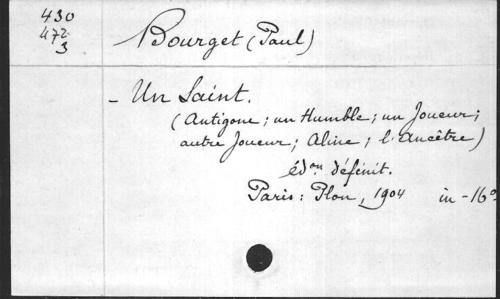 430
472
3
Bourget (Paul)
- Un Saint.
(Antigone ; un Humble ; un Joueur ;
autre Joueur ; Aline ; l'Ancêtre)
édon définit.
Paris : Plon, 1904 in-16o